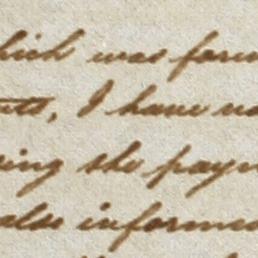 hich was form
I have no
ing the paym
also informed